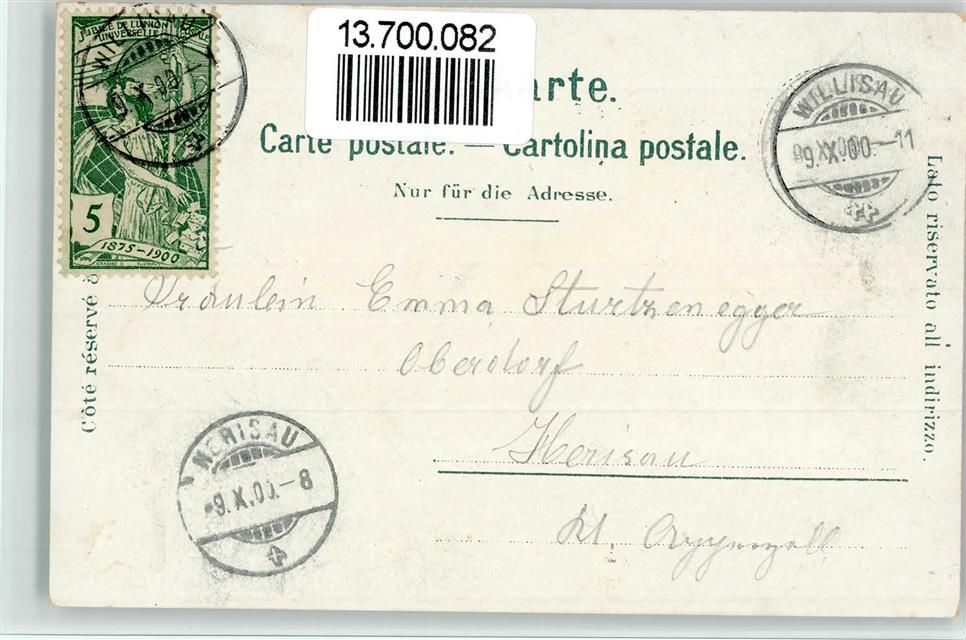 JUBILÉ DE L'UNION POSTALE
UNIVERSELLE
5
1875–1900
13.700.082
arte.
Carte postale. — Cartolina postale.
Nur für die Adresse.
WILLISAU
9.X.00.–11
Côté réservé à
Lato riservato all indirizzo.
Fräulein Emma Sturtzenegger
Oberdorf
Herisau
Kt. Appenzell
HERISAU
9.X.00.–8